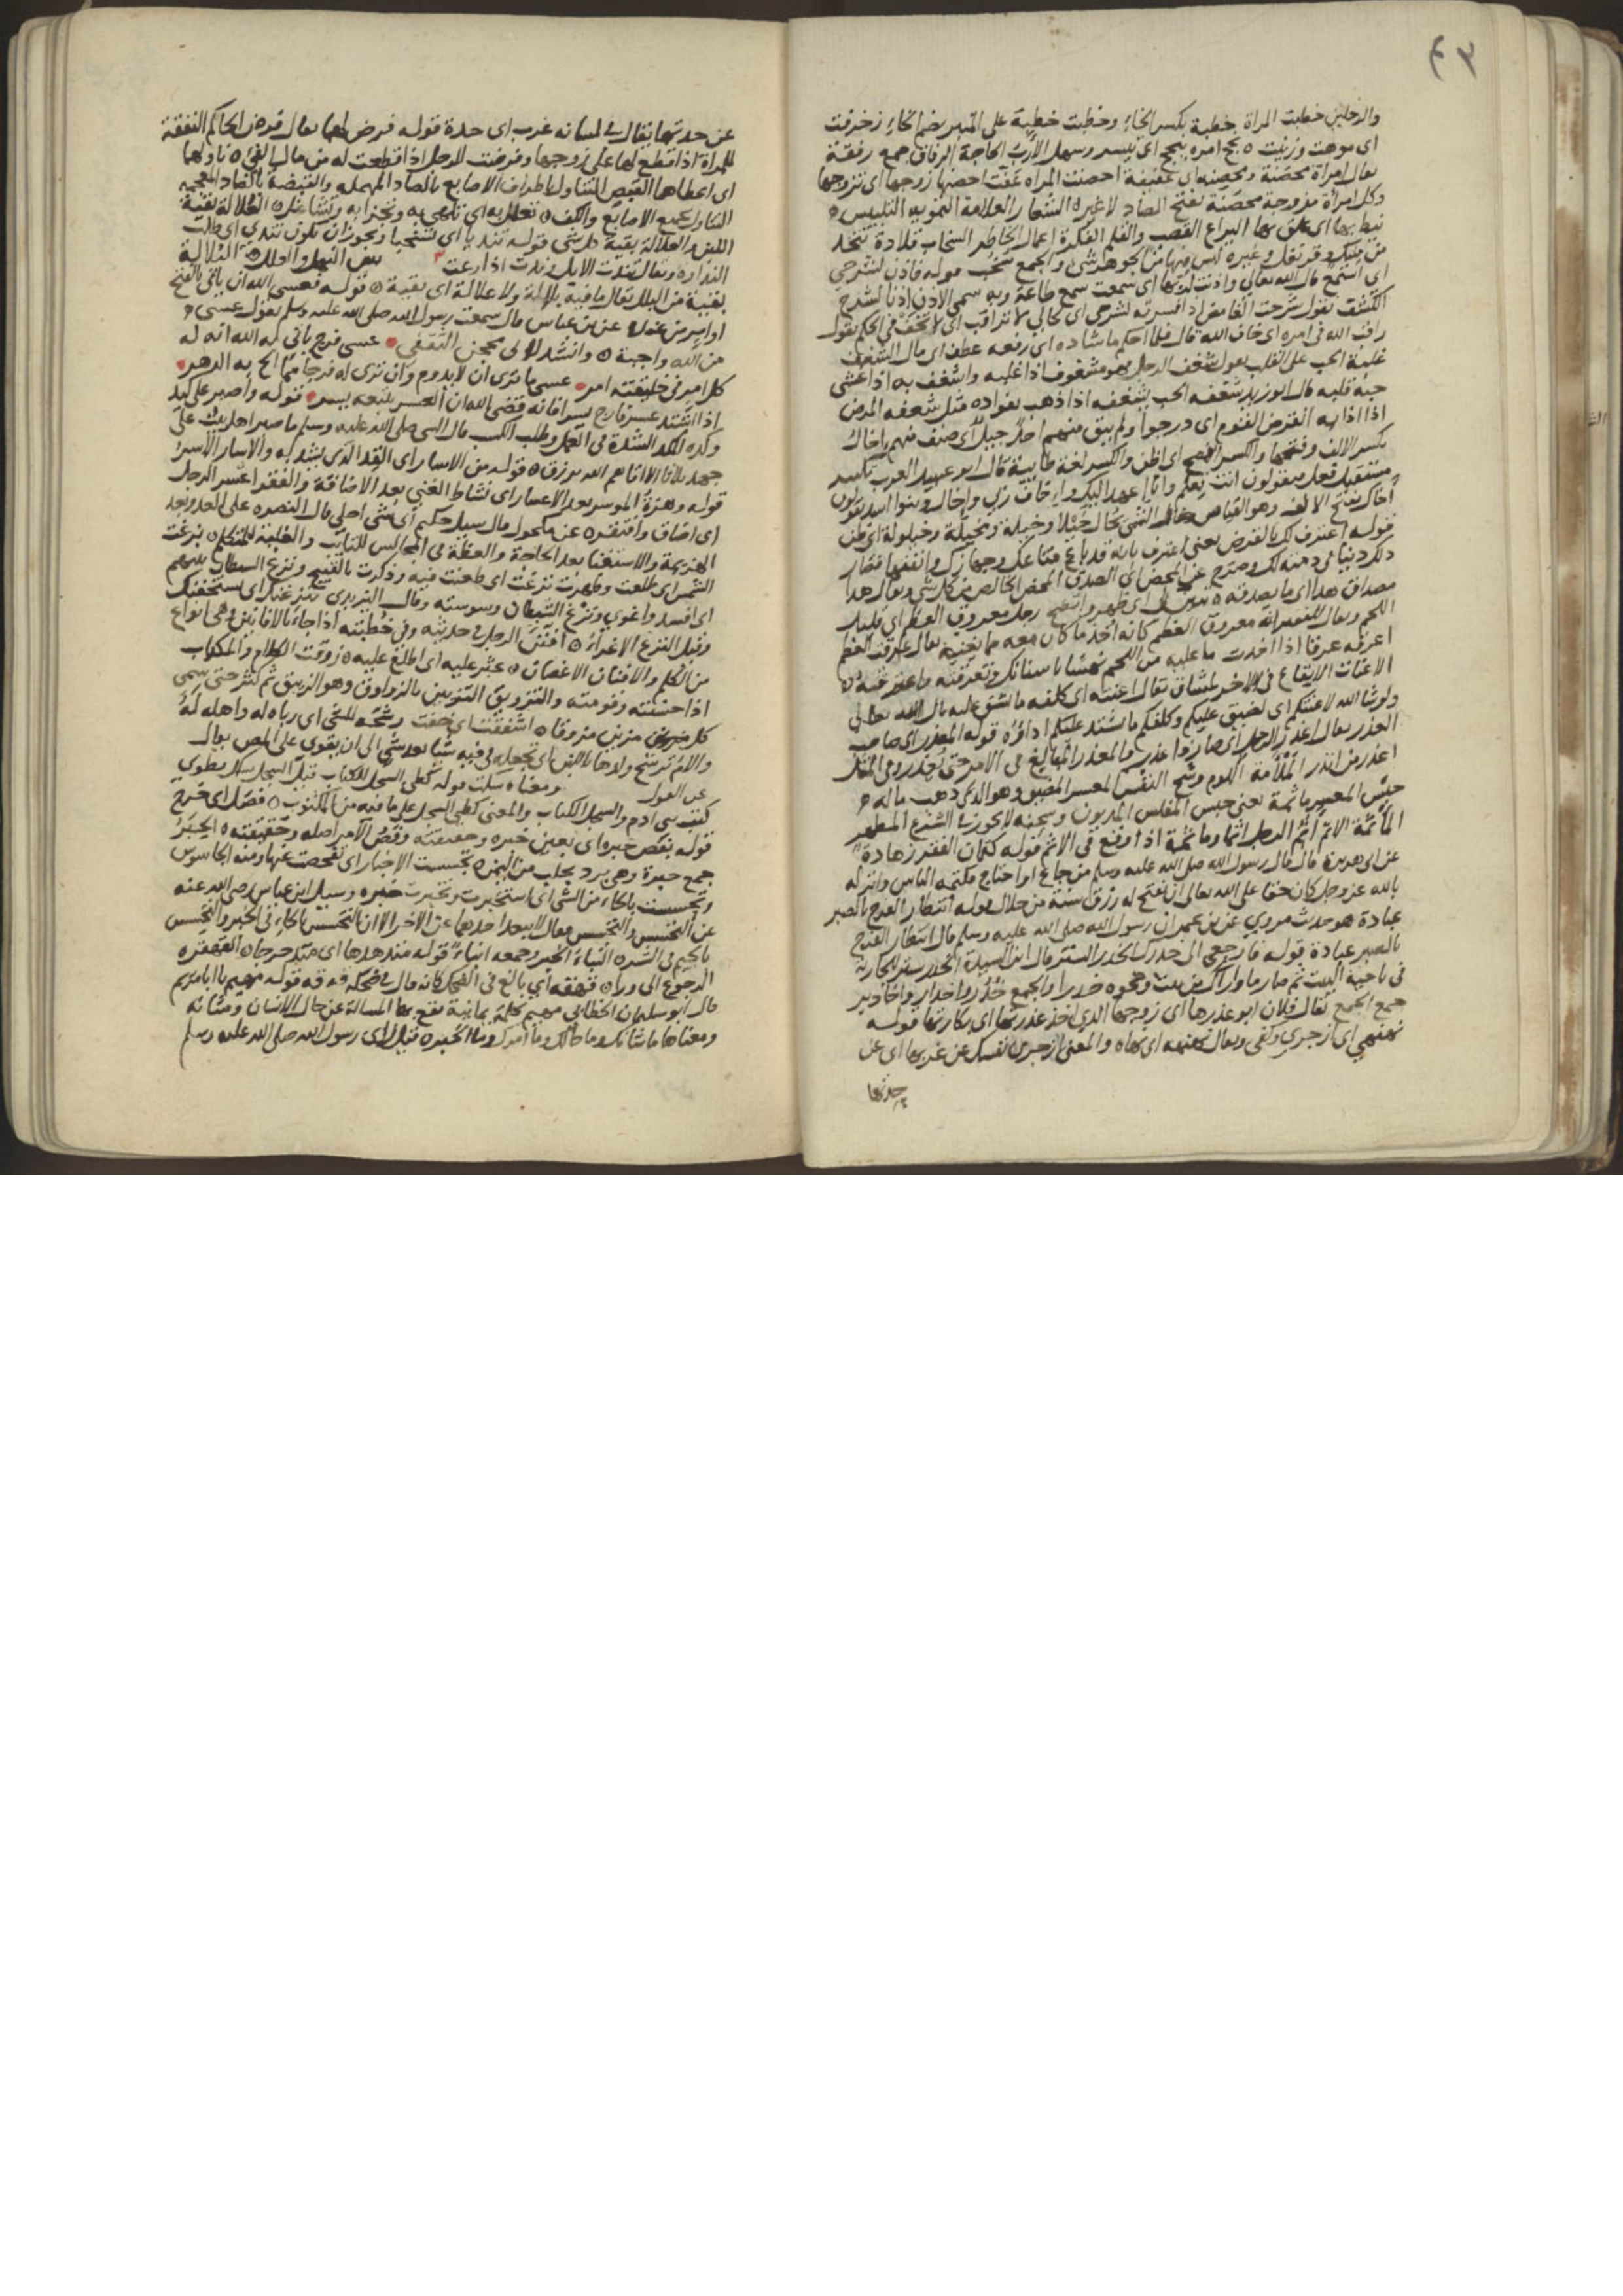 ٤٣
والرجلين خطبت المراة خطبة بكسر الخاء وخطبت خطبة على المنبر بضم الخاء زخرفت
اي موهت وزينت نجح امره ينجح اي تيسر وسهل الارب الحاجة الرفاق جمع رفقة
يقال امراة محصنة ومحصنه اي عفيفة احصنت المراه عفت احصنها زوجها اي تزوجها
وكل امراة مزوجة محصنة بفتح الصاد لاغير الشعار العلامة التمويه التلبيس
نيط بها اي علق بها اليراع القصب والقلم الفكرة اعمال الخاطر السخاب قلادة تتخذ
من سك وقرنفل وغيره ليس فيها من الجوهر شي والجمع سخب قوله فاذن لشرحي
اي استمع قال الله تعالى واذنت لربها اي سمعت سمع طاعة وبه سمي الاذن اذنا الشرح
الكشف تقول شرحت الغامض اذا فسرته لشرحي اي لحالي لا تراقب اي لا تخف في الحكم يقول
راقب الله في امره اي خاف الله قال فلما احكم ما شاده اي رفعه عطف اي مال الشغف
غلبة الحب على القلب يقول شغف الرجل فهو مشغوف اذا غلبه واشغف به اذا غشى
حبة قلبه قال ابو زيد شغفه الحب يشغفه اذا ذهب بفواده قيل شعفه المرض
اذا اذابه انقرض القوم اي درجوا ولم يبق منهم احد جيل اي صنف منهم اخال
بكسر الالف وفتحها والكسر افصح اي اظن والكسر لغة طايية قال ابو عبيد العرب تكسر
مستقبل فعل فيقولون انت تعلم وانا اعهد اليك واخاف ربي واخال وبنوا اسد يقولون
اخال بفتح الالف وهو القياس خال الشي يخال خيلا وخيلة ومخيلة وخيلولة اي ظن
قوله اعترف لك بالقرض يعني اعترف بانه قد باع متاعك وجهازك وانفقها فصار
ذلك دينا في ذمته لك وصرح عن المحض اي الصدق المحض الخالص من كل شي ويقال هذا
مصداق هذا اي ما يصدقه تبين اي ظهر واتضح رجل معروق العظم اي قليل
اللحم ويقال للفقير انه معروق العظم كانه اخذ ما كان معه مما يغنيه يقال عرقت العظم
اعرقه عرقا اذا اخذت ما عليه من اللحم نهشا باسنانك وتعرقته واعترقته
الاعنات الايقاع في الامر الشاق يقال اعنته اي كلفه ما شق عليه قال الله تعالى
ولو شا الله لاعنتكم اي لضيق عليكم وكلفكم ما يشتد عليكم اداؤه قوله المعذر اي صاحب
العذر يقال اعذر الرجل اي صار ذا عذر والمعذر المبالغ في الامر حتى يعذر وفي المثل
اعذر من انذر الملامة اللوم وشح النفس المعسر المضيق وهو الذي ذهب ماله
حبس المعسر ماثمة يعني حبس المفلس المديون وسجنه لا يجوز في الشرع المطهر
الماثمة الاثم اثم الرجل اثما وماثمة اذا وقع في الاثم قوله كتمان الفقر زهادة
عن ابي هريرة قال قال رسول الله صلى الله عليه وسلم من جاع او احتاج فكتمه الناس وانزله
بالله عز وجل كان حقا على الله تعالى ان يفتح له رزق سنة من حلال قوله انتظار الفرج بالصبر
عبادة هو حديث مروي عن بن عمر ان رسول الله صلى الله عليه وسلم قال انتظار الفرج
بالصبر عبادة قوله فارجعي الى خدرك الخدر الستر قال ابن السيد الخدر ستر للجارية
في ناحية البيت ثم صار ما واراك من بيت ونحوه خدرا والجمع خدر واخدار واخادير
جمع الجمع يقال فلان ابو عذرها اي زوجها الذي اخذ عذرتها اي بكارتها قوله
نهنهي اي ازجري وكفي ويقال نهنهه اي نهاه والمعنى ازجري نفسك عن غربها اي عن
حدتها
عن حدتها يقال في لسانه غرب اي حدة قوله فرض لهما يقال فرض الحاكم النفقة
للمراة اذا قطع لها على زوجها وفرضت للرجل اذا قطعت له من مال الفئ ناولهما
اي اعطاهما القبص التناول باطراف الاصابع بالصاد المهمله والقبضة بالضاد المعجمه
التناول بجميع الاصابع والكف تعللا به اي تلهي به وتجزا به وتشاغل العلالة بقية
اللبن والعلالة بقية كل شي قوله تنديا به اي تشفيا ويجوز ان تكون تندي اي طلب
النداوة ويقال تندت الابل وندت اذا رعت بين النهل والعلل البلالة
بقية من البلل يقال ما فيه بلالة ولا علالة اي بقية قوله فعسى الله ان ياتي بالفتح
او امر من عنده عن بن عباس قال سمعت رسول الله صلى الله عليه وسلم يقول عسى
من الله واجبة وانشد لابي محجن الثقفي عسى فرج ياتي به الله انه له
كل امر في خليقته امر عسى ما ترى ان لا يدوم وان ترى له فرجا مما الح به الدهر
اذا اشتد عسر فارج يسرا فانه قضى الله ان العسر يتبعه يسر قوله واصبر على كد
وكده الكد الشدة في العمل وطلب الكسب قال النبي صلى الله عليه وسلم ما صبر اهل بيت على
جهد ثلاثا الا اتاهم الله برزق قوله من الاسار اي القد الذي يشد به والاسار الاسر
قوله وهزة الموسر بعد الاعسار اي نشاط الغني بعد الاضاقة والفقر اعسر الرجل
اي اضاق وافتقر عن مكحول قال سيل حكيم اي شي احلى قال النصره على العدو بعد
الهزيمة والاستغنا بعد الحاجة والعظة في المجالس للتايب والغلبة للمتكلم بزغت
الشمس اي طلعت وظهرت نزغت اي طعنت فيه وذكرت بالقبيح ونزغ الشيطان بينهم
اي افسد واغوى ونزغ الشيطان وسوسته وقال اليزيدي ينزغنك اي يستخفنك
وقيل النزغ الاغراء افتن الرجل في حديثه وفي خطبته اذا جاء بالافانين وهي انواع
من الكلم والافنان الاغصان عثر عليه اي اطلع عليه زوقت الكلام والكتاب
اذا حسنته وقومته والتزويق التزيين بالزواوق وهو الزيبق ثم كثر حتى سمي
كل مزين مزوقا اشفقت اي خفت رشحه للشي اي رباه له واهله له
والام ترشح ولدها باللبن اي تجعله في فيه شيا بعد شي الى ان يقوى على المص يقال
عن القول ومعناه سكت قوله كطي السجل للكتاب قيل السجل ملك يطوي
كتب بني ادم والسجل الكتاب والمعنى كطي السجل على ما فيه من المكتوب فصل اي خرج
قوله بفص خبره اي بعين خبره وحقيقته وفص الامر اصله وحقيقته الحبر
جمع حبرة وهي برد يجلب من اليمن تجسست الاخبار اي تفحصت عنها ومنه الجاسوس
وتحسست بالحاء من الشي اي استخبرت وتخبرت خبره وسيل ابن عباس رضي الله عنه
عن التجسس والتحسس فقال لا يبعد احدهما عن الاخر الا ان التحسس بالحاء في الخير والتجسس
بالجيم في الشر النباء الخبر وجمعه انباء قوله متدهدها اي متدحرجا القهقره
الرجوع الى ورا قهقه اي بالغ في الضحك كانه قال في ضحكه قه قه قوله مهيم يا ابا مريم
قال ابو سليمان الخطابي مهيم كلمة يمانية تقع بها المسالة عن حال الانسان وشانه
ومعناها ما شانك وما حالك وما امرك وما الخبر قيل راى رسول الله صلى الله عليه وسلم